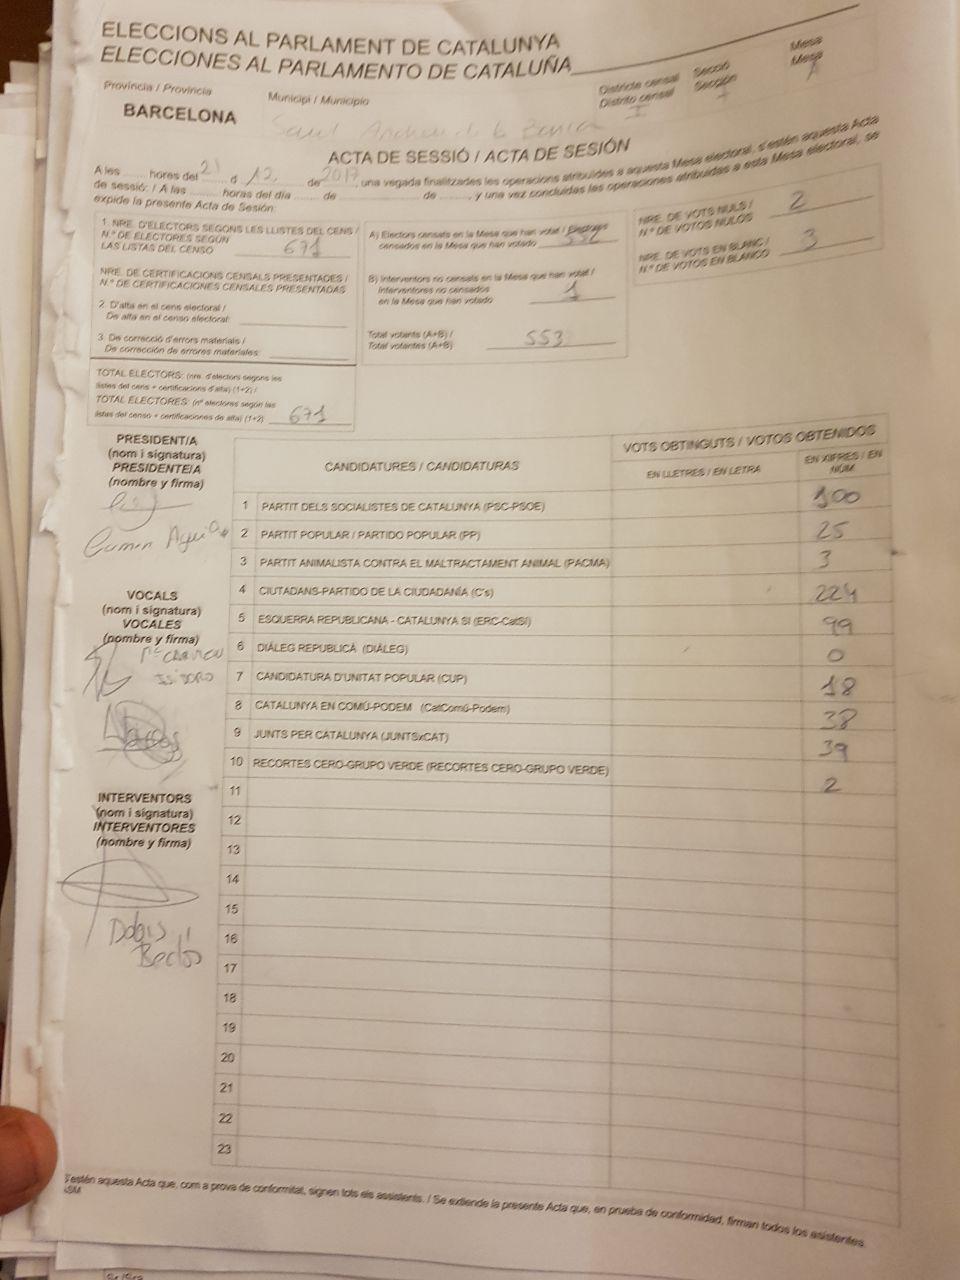 ELECCIONS AL PARLAMENT DE CATALUNYA
ELECCIONES AL PARLAMENTO DE CATALUÑA
Província / Provincia
BARCELONA
Municipi / Municipio
Sant Andreu de la Barca
Districte censal
Distrito censal
I
Secció
Sección
I
Mesa
Mesa
A
ACTA DE SESSIÓ / ACTA DE SESIÓN
A les ........ hores del 21 d 12. de 2017, una vegada finalitzades les operacions atribuïdes a aquesta Mesa electoral, s'estén aquesta Acta
de sessió: / A las ........ horas del día ........ de ........ de ........, y una vez concluidas las operaciones atribuidas a esta Mesa electoral, se
expide la presente Acta de Sesión:
1. NRE. D'ELECTORS SEGONS LES LLISTES DEL CENS /
N.º DE ELECTORES SEGÚN
LAS LISTAS DEL CENSO 671
NRE. DE CERTIFICACIONS CENSALS PRESENTADES /
N.º DE CERTIFICACIONES CENSALES PRESENTADAS
2. D'alta en el cens electoral /
De alta en el censo electoral:
3. De correcció d'errors materials /
De corrección de errores materiales:
TOTAL ELECTORS: (nre. d'electors segons les
llistes del cens + certificacions d'alta) (1+2) /
TOTAL ELECTORES: (nº electores según las
listas del censo + certificaciones de alta) (1+2) 671
A) Electors censats en la Mesa que han votat / Electores
censados en la Mesa que han votado 552
B) Interventors no censats en la Mesa que han votat /
Interventores no censados
en la Mesa que han votado 1
Total votants (A+B) /
Total votantes (A+B) 553
NRE. DE VOTS NULS /
N.º DE VOTOS NULOS 2
NRE. DE VOTS EN BLANC /
N.º DE VOTOS EN BLANCO 3
PRESIDENT/A
(nom i signatura)
PRESIDENTE/A
(nombre y firma)
Carmen
VOCALS
(nom i signatura)
VOCALES
(nombre y firma)
Mª CARMEN
ISIDORO
INTERVENTORS
(nom i signatura)
INTERVENTORES
(nombre y firma)
CANDIDATURES / CANDIDATURAS
VOTS OBTINGUTS / VOTOS OBTENIDOS
EN LLETRES / EN LETRA
EN XIFRES / EN NÚM
1 PARTIT DELS SOCIALISTES DE CATALUNYA (PSC-PSOE) 100
2 PARTIT POPULAR / PARTIDO POPULAR (PP) 25
3 PARTIT ANIMALISTA CONTRA EL MALTRACTAMENT ANIMAL (PACMA) 3
4 CIUTADANS-PARTIDO DE LA CIUDADANÍA (C's) 224
5 ESQUERRA REPUBLICANA - CATALUNYA SÍ (ERC-CatSí) 99
6 DIÀLEG REPUBLICÀ (DIÀLEG) 0
7 CANDIDATURA D'UNITAT POPULAR (CUP) 18
8 CATALUNYA EN COMÚ-PODEM (CatComú-Podem) 38
9 JUNTS PER CATALUNYA (JUNTSxCAT) 39
10 RECORTES CERO-GRUPO VERDE (RECORTES CERO-GRUPO VERDE) 2
11
12
13
14
15
16
17
18
19
20
21
22
23
S'estén aquesta Acta que, com a prova de conformitat, signen tots els assistents. / Se extiende la presente Acta que, en prueba de conformidad, firman todos los asistentes.